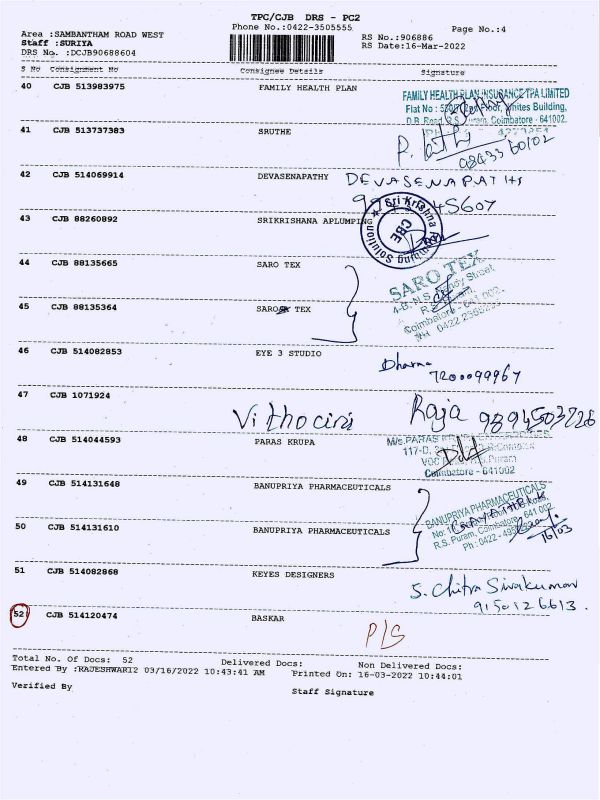 TPC/CJB DRS - PC2
Phone No.:0422-3505555
Page No.:4
Area :SAMBANTHAM ROAD WEST
Staff :SURIYA
DRS No. :DCJB90688604
RS No.:906886
RS Date:16-Mar-2022
S No Consignment No Consignee Details Signature
40 CJB 513983975 FAMILY HEALTH PLAN
FAMILY HEALTH PLAN INSURANCE TPA LIMITED
Flat No : Floor, Whites Building,
D.B. Road, R.S. Puram, Coimbatore - 641002.
41 CJB 513737383 SRUTHE
98433 60102
42 CJB 514069914 DEVASENAPATHY
DEVASENAPATHI
45607
43 CJB 88260892 SRIKRISHANA APLUMPING
Sri Krishna Plumbing Solutions
CBE
44 CJB 88135665 SARO TEX
SARO TEX
Street
Coimbatore - 641 002.
45 CJB 88135364 SARO TEX
46 CJB 514082853 EYE 3 STUDIO
Dharma
7200099967
47 CJB 1071924
Raja 9894503726
48 CJB 514044593 PARAS KRUPA
M/s.PARAS
117-D,
Coimbatore - 641002
49 CJB 514131648 BANUPRIYA PHARMACEUTICALS
BANUPRIYA PHARMACEUTICALS
R.S. Puram, Coimbatore - 641 002
Ph : 0422 -
16/03
50 CJB 514131610 BANUPRIYA PHARMACEUTICALS
51 CJB 514082868 KEYES DESIGNERS
S. Chitra Sivakumar
9150126613.
52 CJB 514120474 BASKAR
P/S
Total No. Of Docs: 52 Delivered Docs: Non Delivered Docs:
Entered By :RAJESHWARI2 03/16/2022 10:43:41 AM Printed On: 16-03-2022 10:44:01
Verified By
Staff Signature